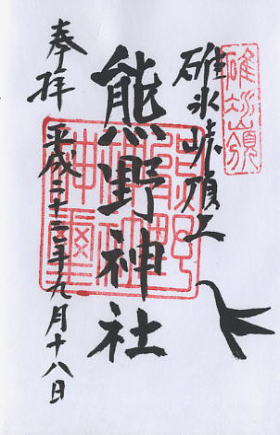 碓氷峠頂上
熊野神社
奉拝
平成二十二年九月十八日
碓氷嶺